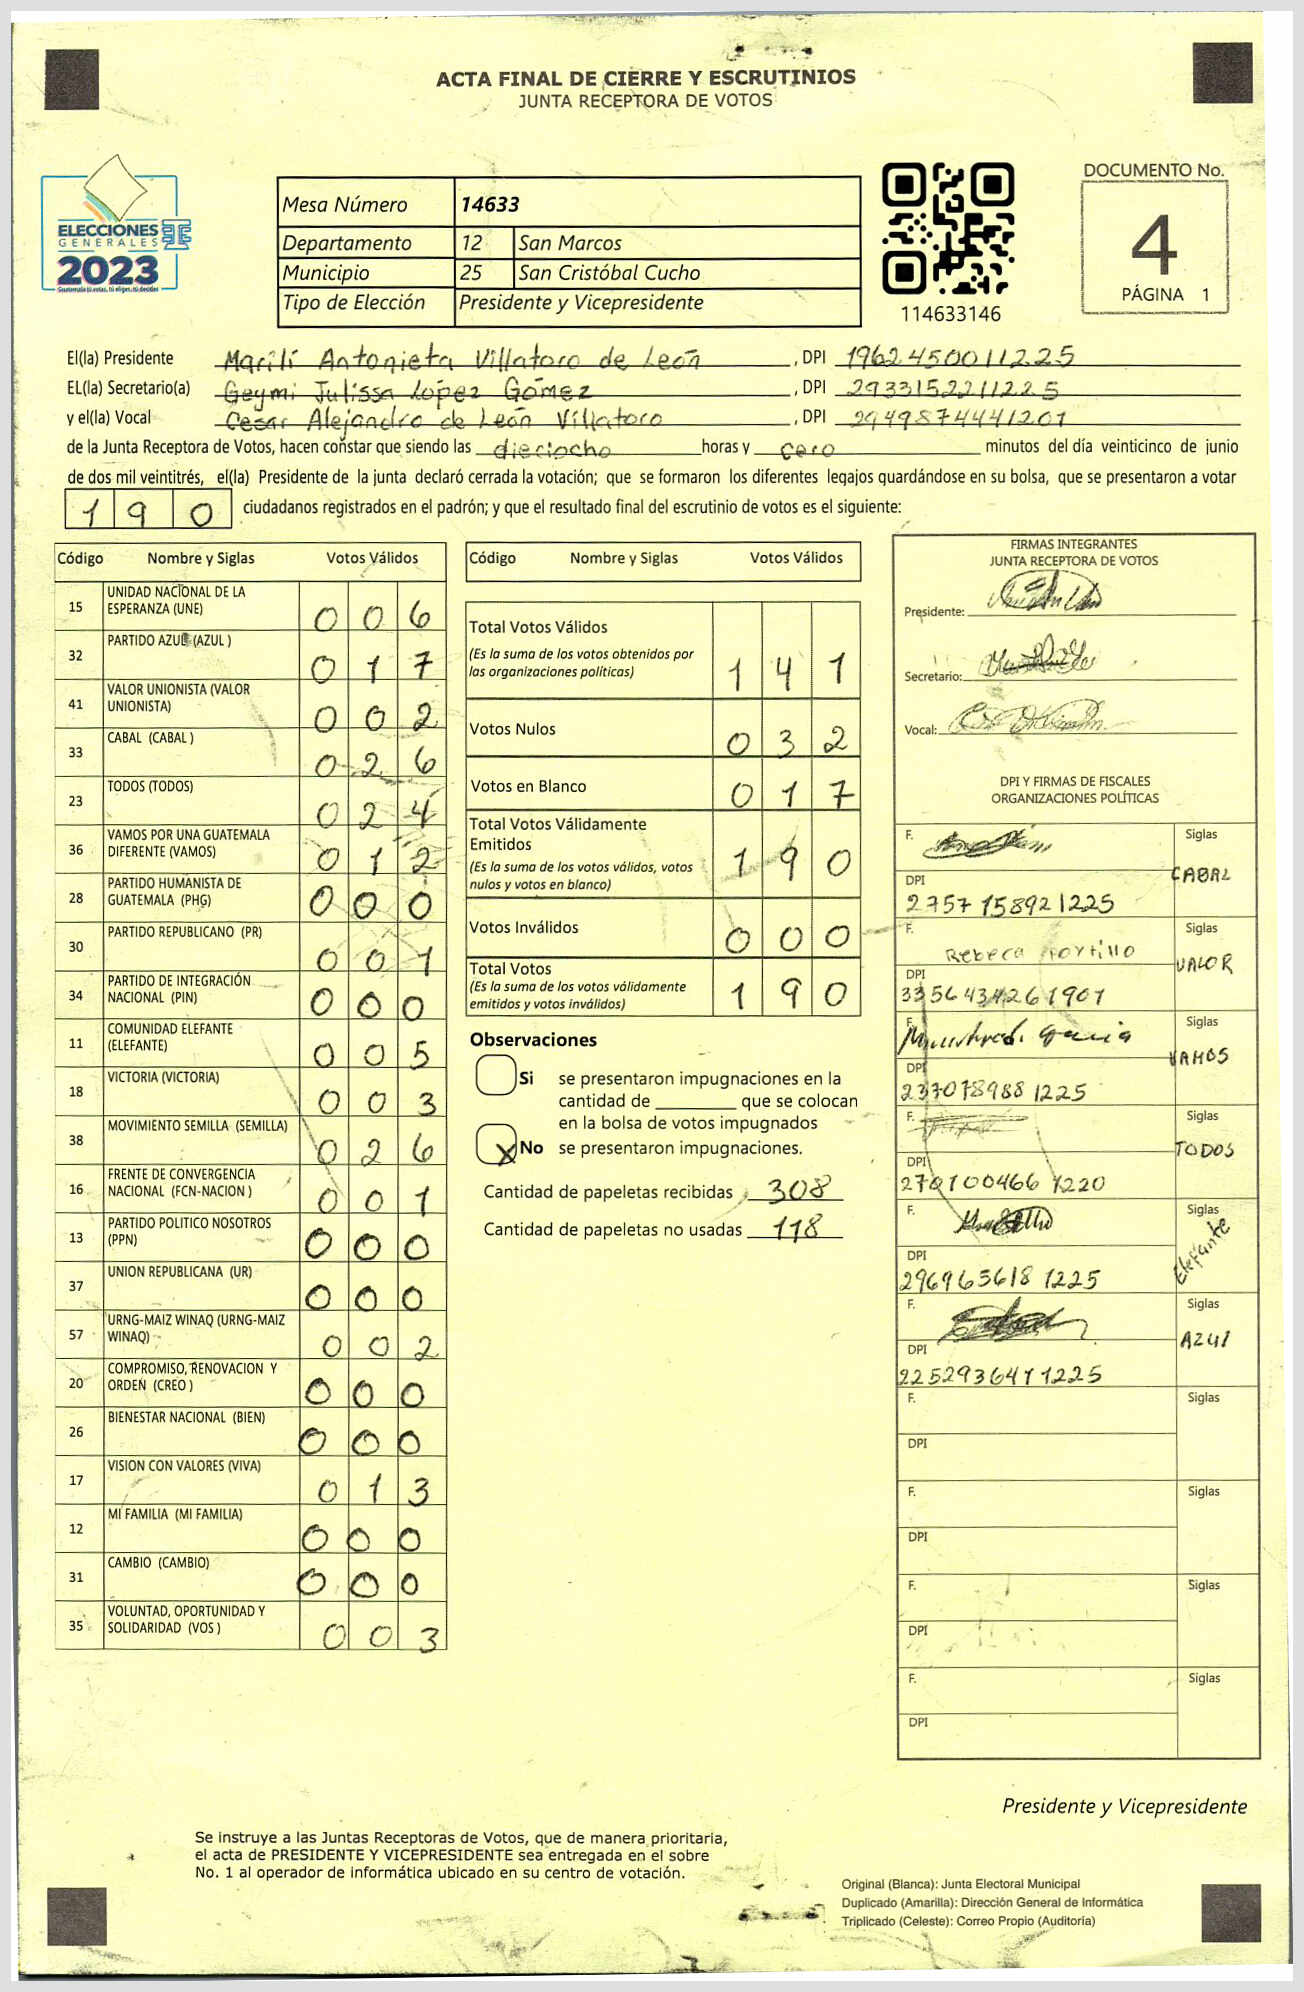 ACTA FINAL DE CIERRE Y ESCRUTINIOS
JUNTA RECEPTORA DE VOTOS
ELECCIONES
GENERALES
2023
Guatemala tú votas, tú eliges, tú decides
Mesa Número 14633
Departamento 12 San Marcos
Municipio 25 San Cristóbal Cucho
Tipo de Elección Presidente y Vicepresidente
114633146
DOCUMENTO No.
4
PÁGINA 1
El(la) Presidente Marilí Antonieta Villatoro de León , DPI 1962450011225
EL(la) Secretario(a) Geymi Julissa López Gómez , DPI 2933152211225
y el(la) Vocal Cesar Alejandro de León Villatoro , DPI 2949874441201
de la Junta Receptora de Votos, hacen constar que siendo las dieciocho horas y cero minutos del día veinticinco de junio
de dos mil veintitrés, el(la) Presidente de la junta declaró cerrada la votación; que se formaron los diferentes legajos guardándose en su bolsa, que se presentaron a votar
190 ciudadanos registrados en el padrón; y que el resultado final del escrutinio de votos es el siguiente:
Código Nombre y Siglas Votos Válidos
15 UNIDAD NACIONAL DE LA
ESPERANZA (UNE) 006
32 PARTIDO AZUL (AZUL ) 017
41 VALOR UNIONISTA (VALOR
UNIONISTA) 002
33 CABAL (CABAL ) 026
23 TODOS (TODOS) 024
36 VAMOS POR UNA GUATEMALA
DIFERENTE (VAMOS) 012
28 PARTIDO HUMANISTA DE
GUATEMALA (PHG) 000
30 PARTIDO REPUBLICANO (PR) 001
34 PARTIDO DE INTEGRACIÓN
NACIONAL (PIN) 000
11 COMUNIDAD ELEFANTE
(ELEFANTE) 005
18 VICTORIA (VICTORIA) 003
38 MOVIMIENTO SEMILLA (SEMILLA) 026
16 FRENTE DE CONVERGENCIA
NACIONAL (FCN-NACION ) 001
13 PARTIDO POLITICO NOSOTROS
(PPN) 000
37 UNION REPUBLICANA (UR) 000
57 URNG-MAIZ WINAQ (URNG-MAIZ
WINAQ) 002
20 COMPROMISO, RENOVACION Y
ORDEN (CREO ) 000
26 BIENESTAR NACIONAL (BIEN) 000
17 VISION CON VALORES (VIVA) 013
12 MI FAMILIA (MI FAMILIA) 000
31 CAMBIO (CAMBIO) 000
35 VOLUNTAD, OPORTUNIDAD Y
SOLIDARIDAD (VOS ) 003
Código Nombre y Siglas Votos Válidos
Total Votos Válidos
(Es la suma de los votos obtenidos por
las organizaciones politicas) 141
Votos Nulos 032
Votos en Blanco 017
Total Votos Válidamente
Emitidos
(Es la suma de los votos válidos, votos
nulos y votos en blanco) 190
Votos Inválidos 000
Total Votos
(Es la suma de los votos válidamente
emitidos y votos inválidos) 190
Observaciones
Si se presentaron impugnaciones en la
cantidad de ________ que se colocan
en la bolsa de votos impugnados
X No se presentaron impugnaciones.
Cantidad de papeletas recibidas 308
Cantidad de papeletas no usadas 118
FIRMAS INTEGRANTES
JUNTA RECEPTORA DE VOTOS
Presidente:
Secretario:
Vocal:
DPI Y FIRMAS DE FISCALES
ORGANIZACIONES POLÍTICAS
F. Siglas
CABAL
DPI
2757 15892 1225
F. Rebeca Portillo Siglas
VALOR
DPI
3356434261901
F. Siglas
VAMOS
DPI
237078988 1225
F. Siglas
TODOS
DPI
270100466 1220
F. Siglas
Elefante
DPI
296963618 1225
F. Siglas
AZUl
DPI
225293641 1225
F. Siglas
DPI
F. Siglas
DPI
F. Siglas
DPI
F. Siglas
DPI
Presidente y Vicepresidente
Se instruye a las Juntas Receptoras de Votos, que de manera prioritaria,
el acta de PRESIDENTE Y VICEPRESIDENTE sea entregada en el sobre
No. 1 al operador de informática ubicado en su centro de votación.
Original (Blanca): Junta Electoral Municipal
Duplicado (Amarilla): Dirección General de Informática
Triplicado (Celeste): Correo Propio (Auditoría)